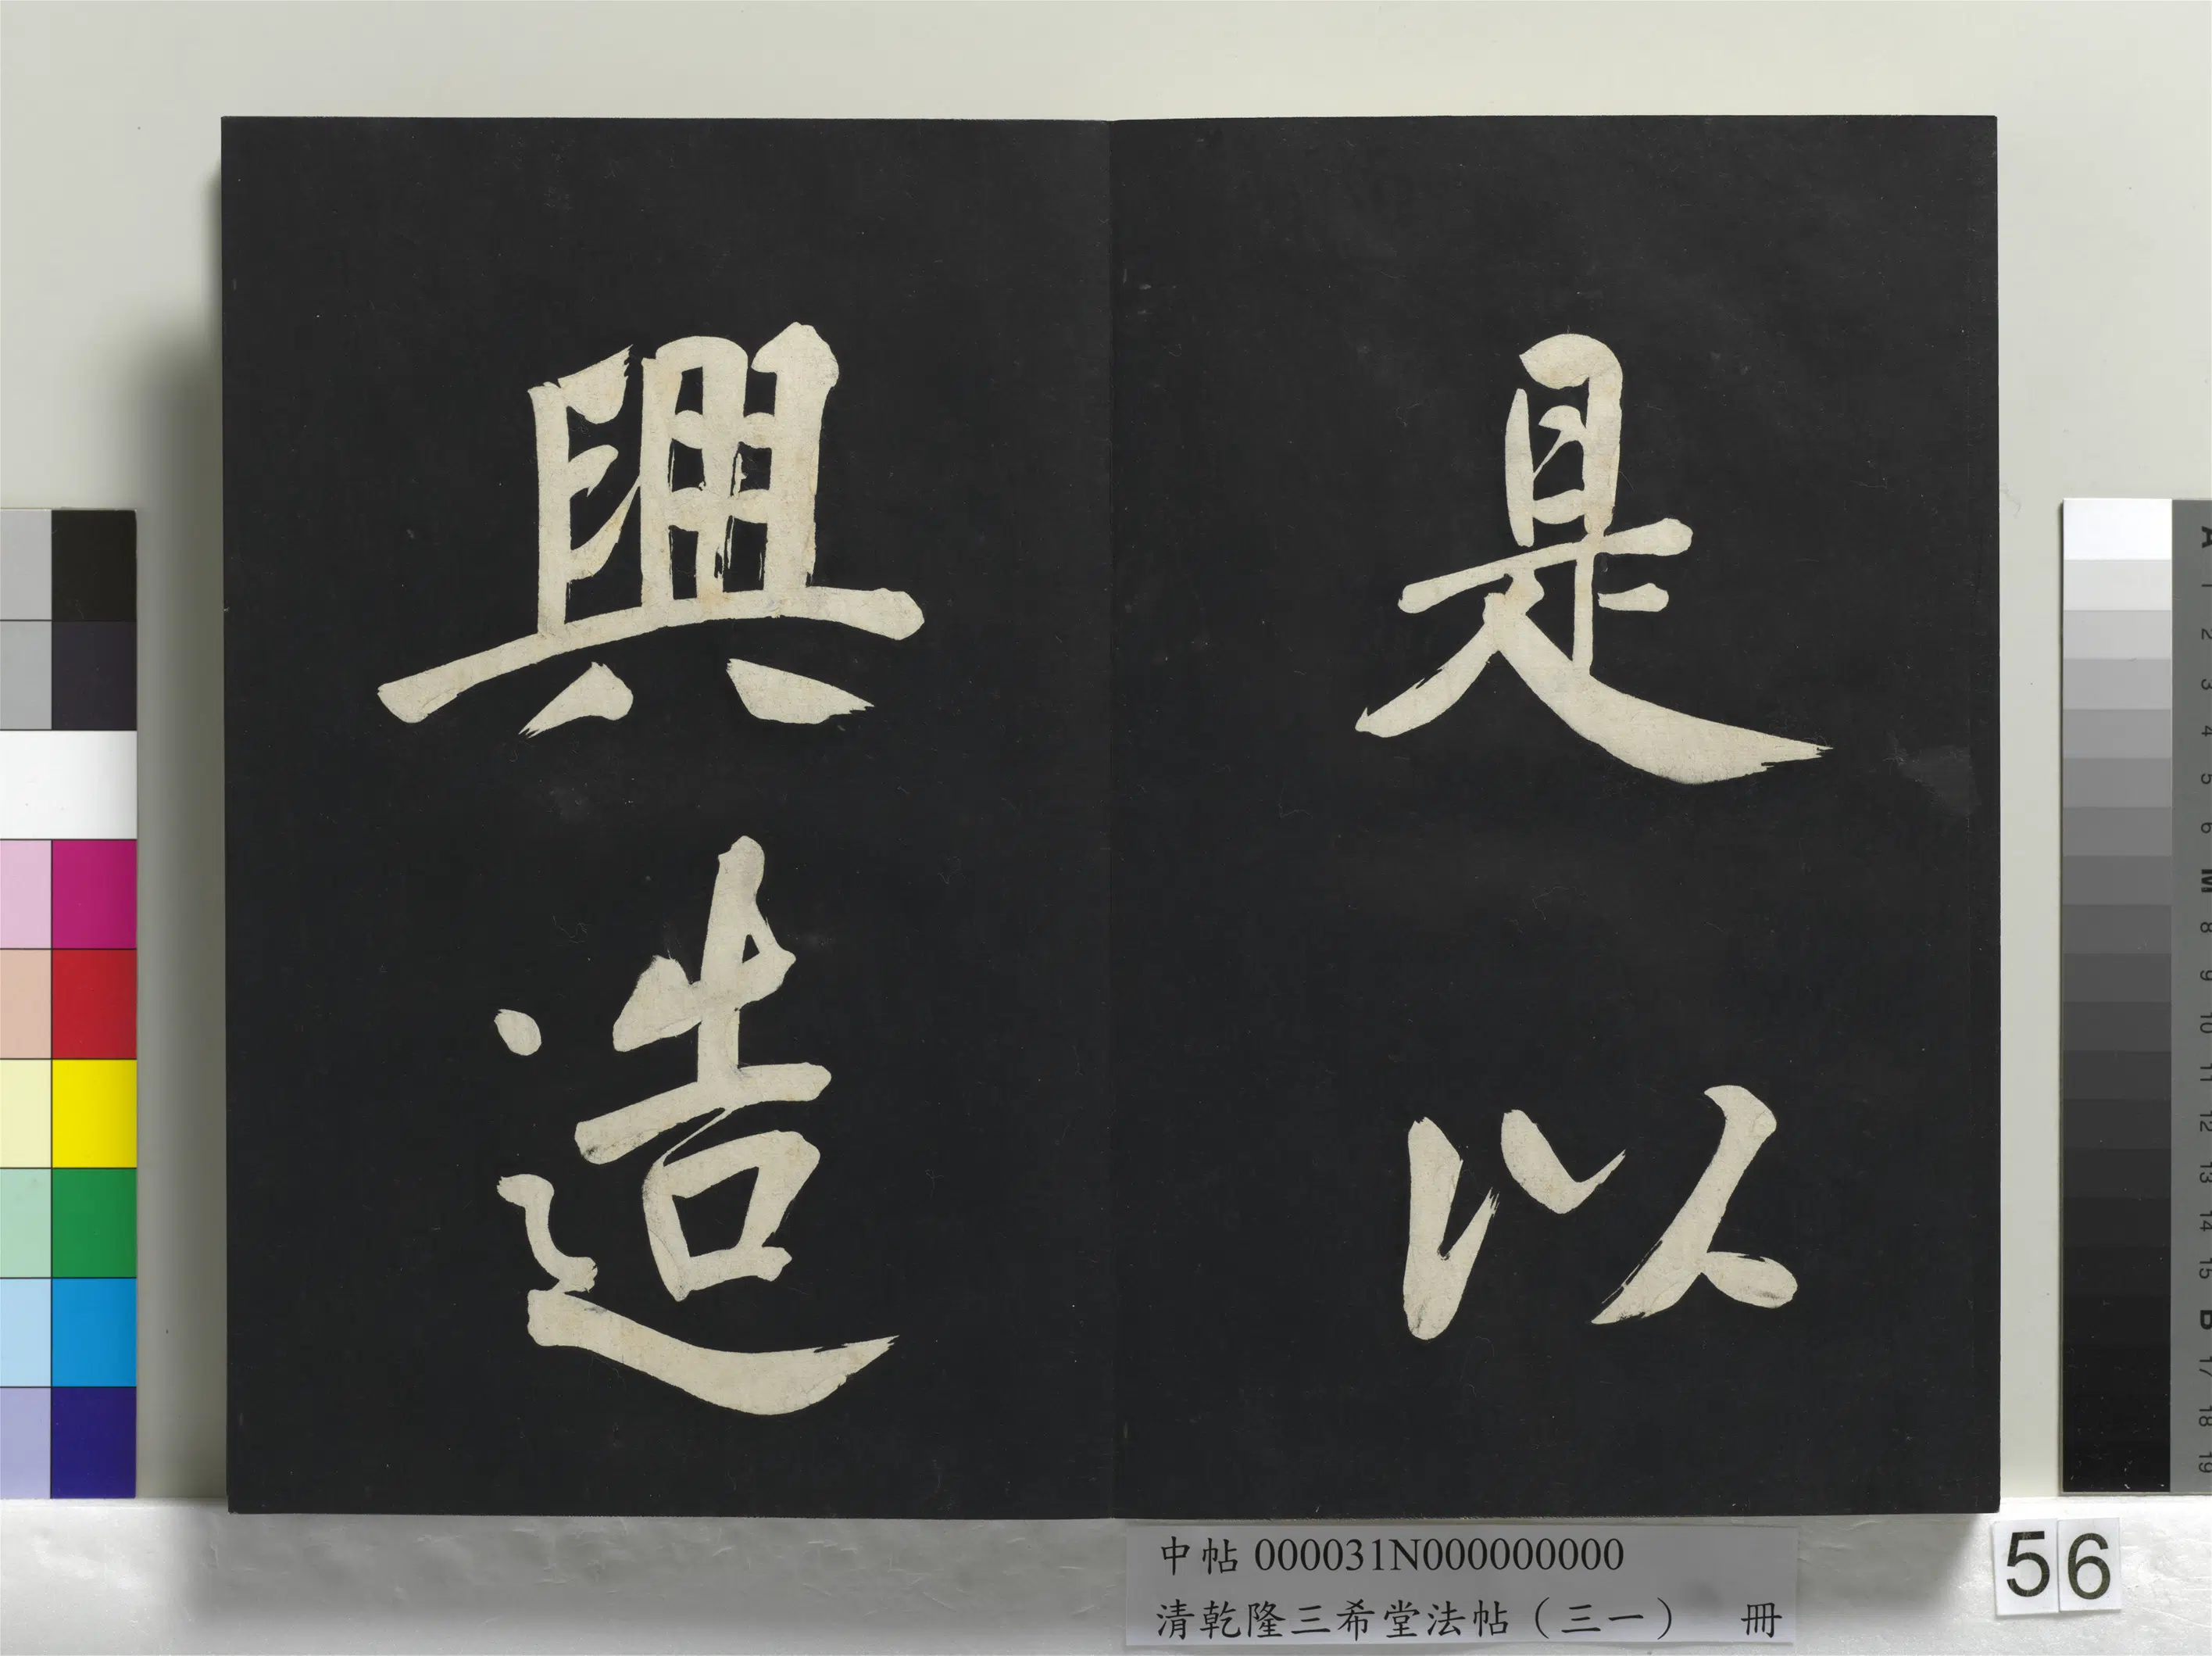 是以
興造
中帖 000031N000000000
清乾隆三希堂法帖（三一） 冊
56
A
1
2
3
4
5
6
M
8
9
10
11
12
13
14
15
B
17
18
19